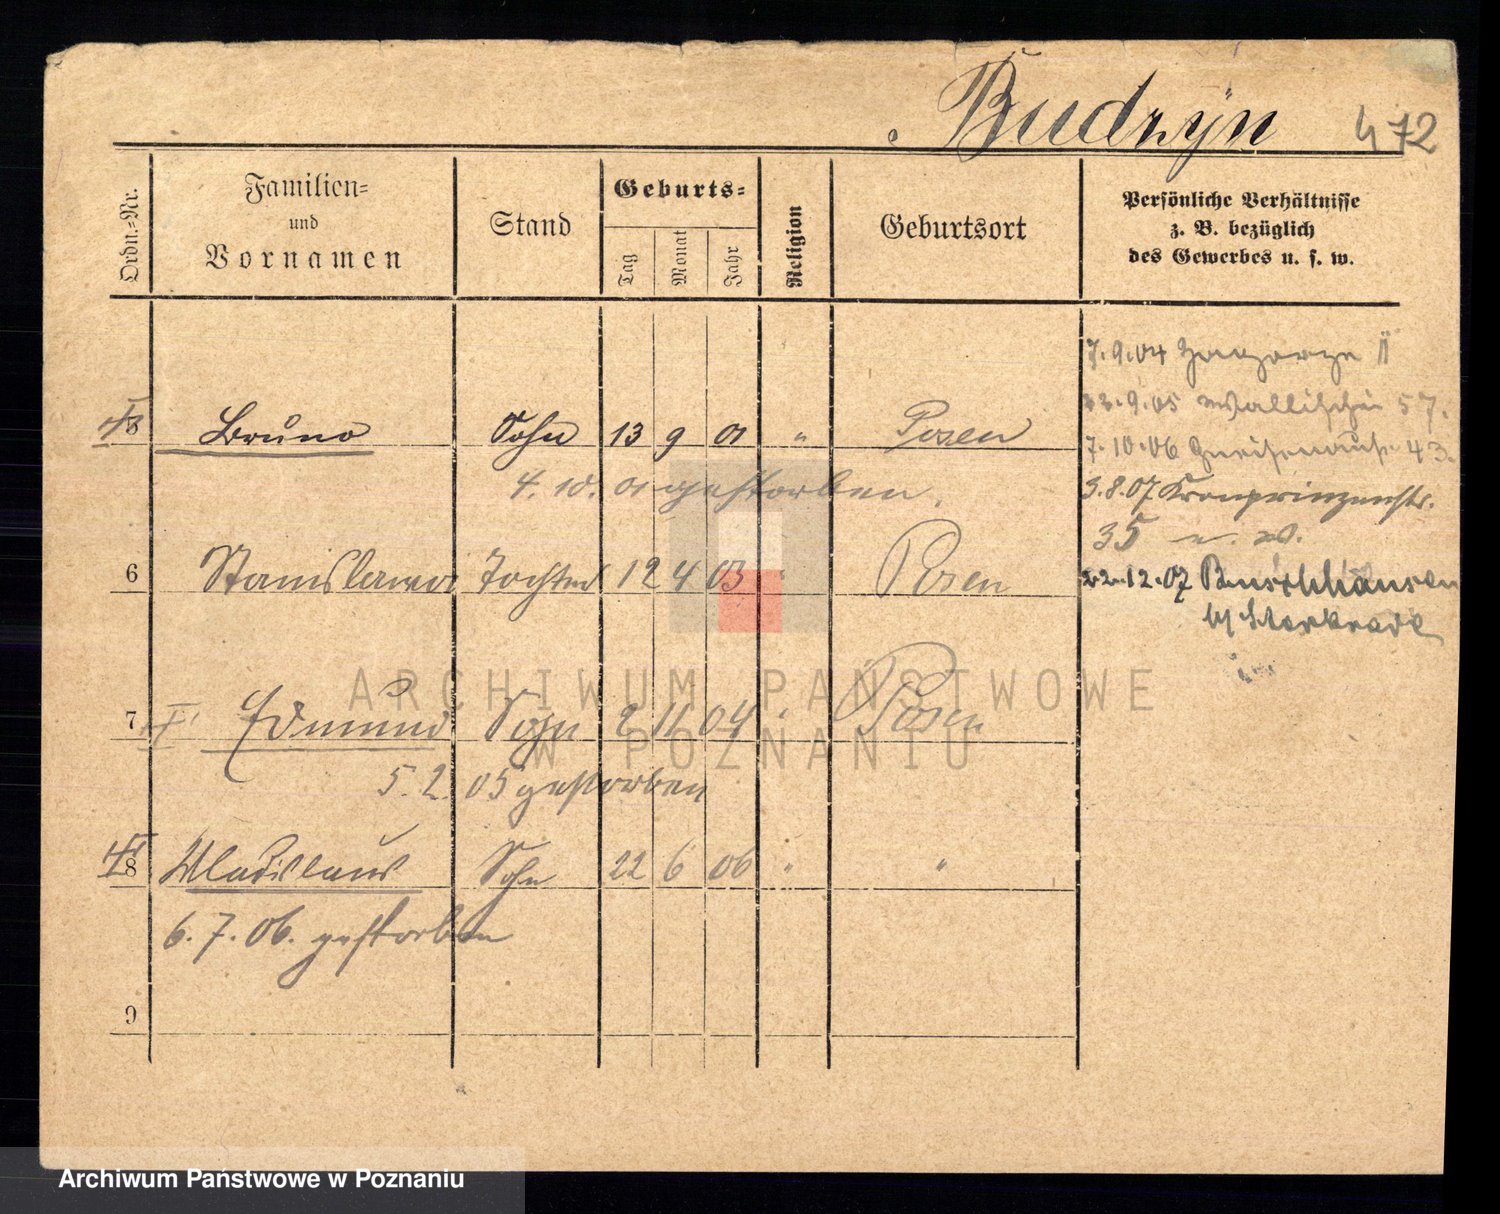 Budzÿn 472
Ordn.-Nr.
Familien-
und
Vornamen
Stand
Geburts-
Tag
Monat
Jahr
Religion
Geburtsort
Persönliche Verhältnisse
z. B. bezüglich
des Gewerbes u. s. w.
7.9.04 Zagorze II
8 Bruno Sohn 13 9 01 " Posen
22.9.05 Wallischei 57.
7.10.06 Gneisenaustr. 43.
4.10.01 gestorben.
3.8.07 Kronprinzenstr.
35
6 Stanislawa Tochter 12 4 03 " Posen
22.12.07 Buschhausen
b/ Sterkrade
7 Edmund Sohn 2 11 04 " Posen
5.2.05 gestorben
8 Wladislaus Sohn 22 6 06 " "
6.7.06. gestorben
9
ARCHIWUM PAŃSTWOWE
W POZNANIU
Archiwum Państwowe w Poznaniu